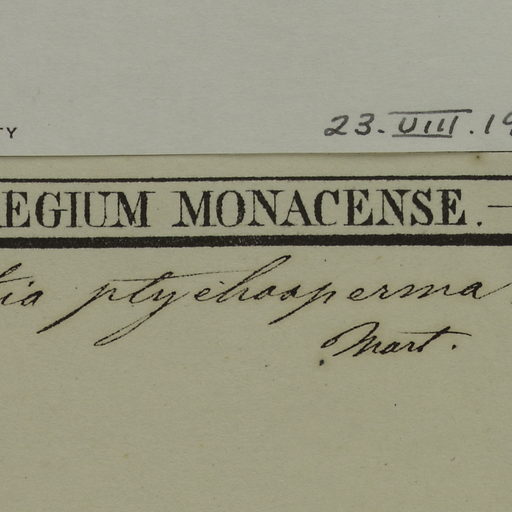 TY
23.VIII.19
REGIUM MONACENSE.—
tia ptychosperma
Mart.